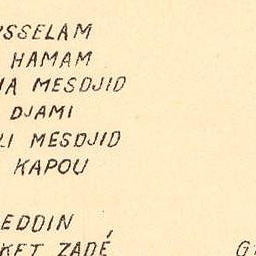 YSSELAM
HAMAM
HA MESDJID
DJAMI
LI MESDJID
KAPOU
EDDIN
KET ZADÉ